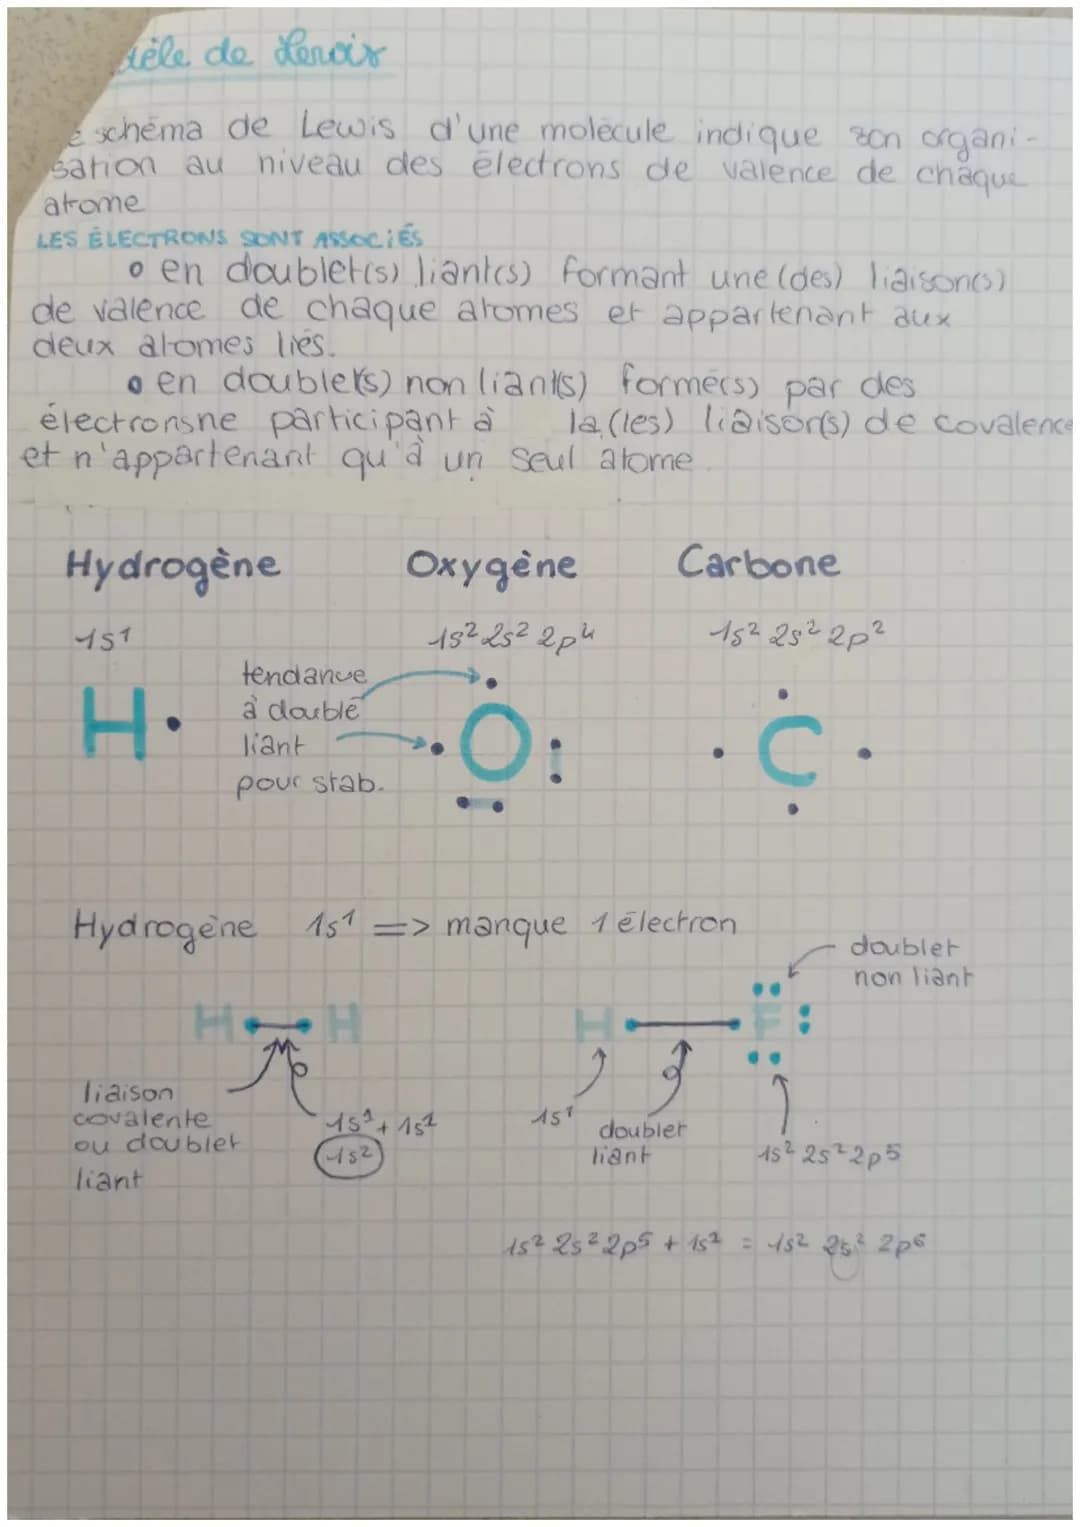 dèle de Lewis
e schéma de Lewis d'une molécule indique son organi-
sation au niveau des électrons de valence de chaque
atome
LES ÉLECTRONS SONT ASSOCIÉS
o en doublet(s) liant(s) formant une (des) liaison(s)
de valence de chaque atomes et appartenant aux
deux atomes liés.
o en doublet(s) non liant(s) formé(s) par des
électronsne participant à la (les) liaison(s) de covalence
et n'appartenant qu'à un seul atome.
Hydrogène Oxygène Carbone
1s¹ 1s² 2s² 2p⁴ 1s² 2s² 2p²
tendance
à doublé
liant
pour stab.
H O C
Hydrogène 1s¹ => manque 1 électron
doublet
non liant
H H H F
liaison
covalente
ou doublet
liant
1s¹ + 1s¹
1s²
1s¹
doublet
liant
1s² 2s² 2p5
1s² 2s² 2p5 + 1s¹ = 1s² 2s² 2p6